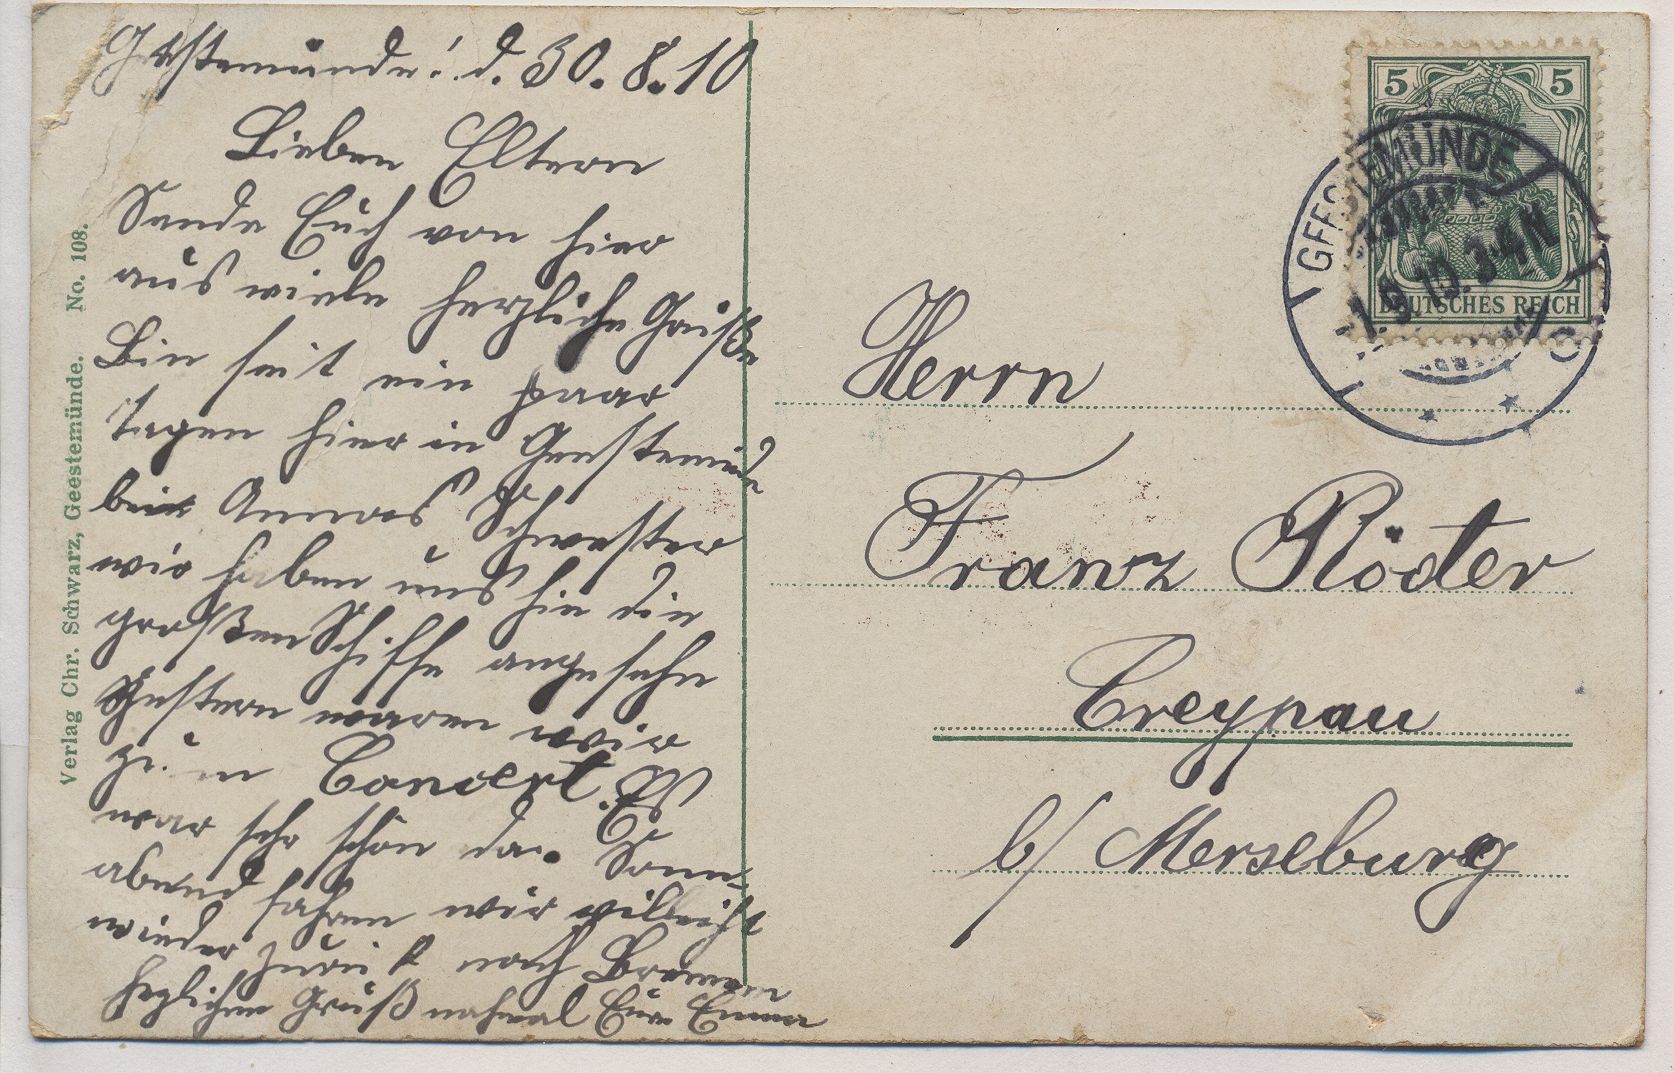 Gestemünde! d. 30.8.10
Lieben Eltern
Sende Euch von hier
aus viele herzliche Grüße
Bin seit ein paar
Tagen hier in Geestemünde
bei Annas Schwester
wir haben uns hir die
großen Schiffe angesehn
Gestern waren wir
zum Concert. Es
war sehr schön da. Sonn-
abend fahren wir villeicht
wieder zurück nach Bremen
Herzlichen Gruß nochmal Eure Emma
Verlag Chr. Schwarz, Geestemünde. No. 108.
5 5
DEUTSCHES REICH
GEESTEMÜNDE
1.9.10. 3-4 N
Herrn
Franz Röder
Creypau
b/ Merseburg